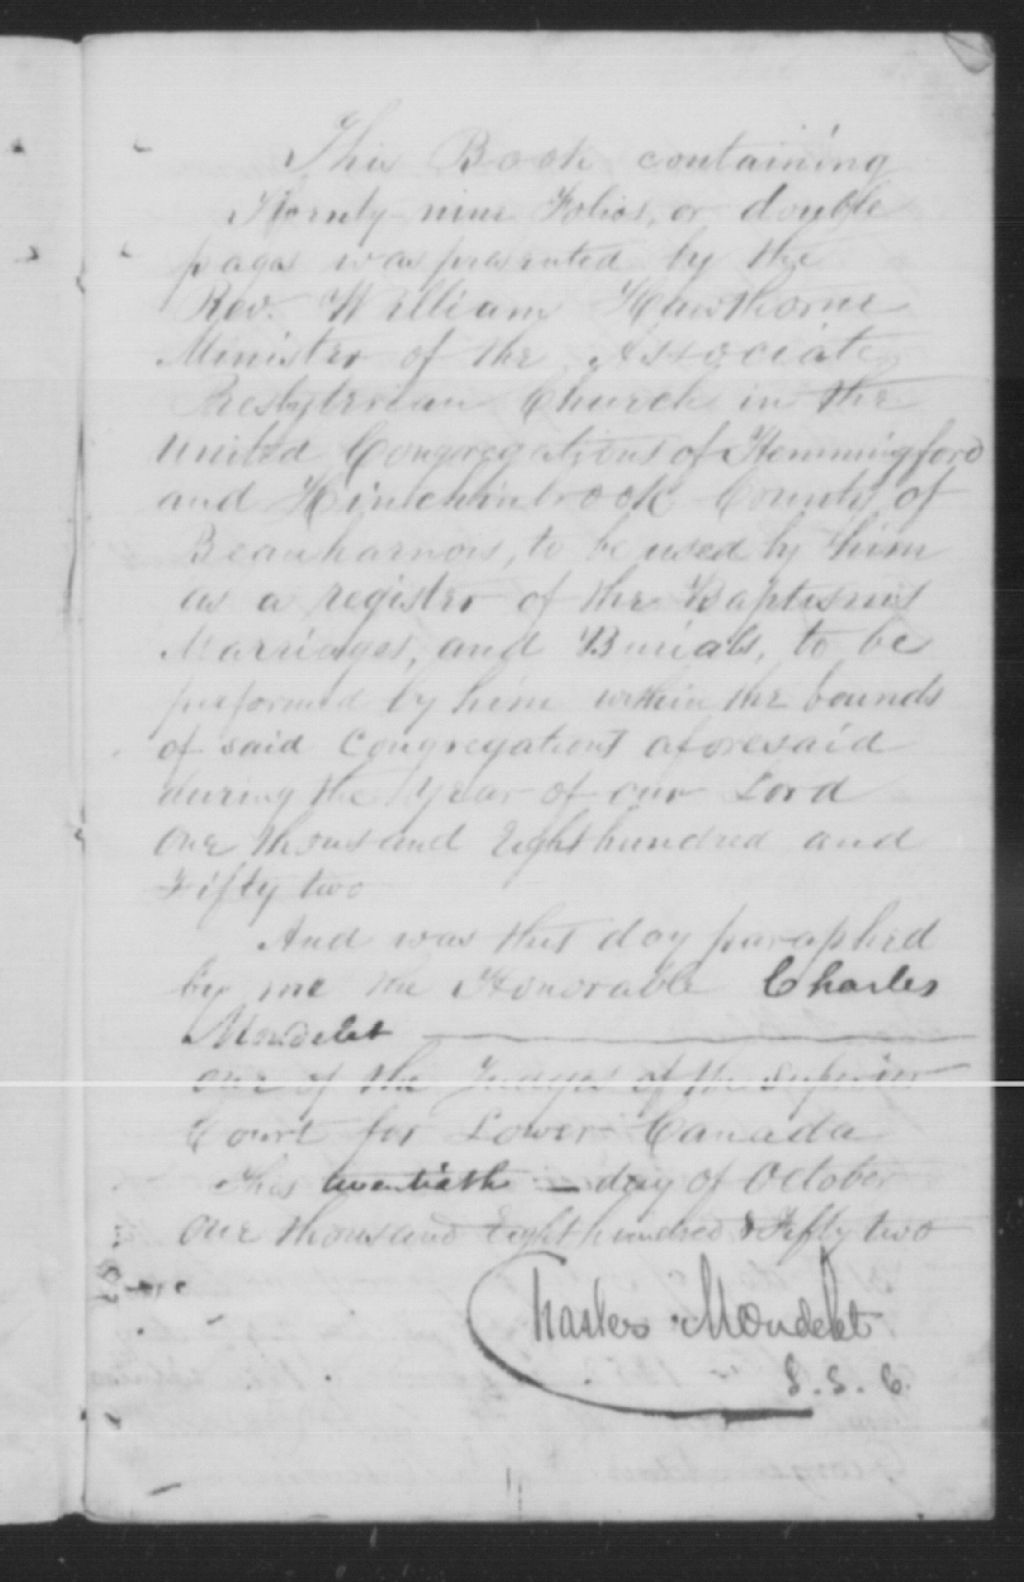 This Book containing
Twenty nine Folios, or double
pages was presented by the
Rev. William Hawthorne
Minister of the Associate
Presbyterian Church in the
united Congregations of Hemmingford
and Hinchinbrook County of
Beauharnois, to be used by him
as a register of the Baptisms
Marriages, and Burials, to be
performed by him within the bounds
of said Congregations aforesaid
during the year of our Lord
One thousand Eight hundred and
Fifty two
And was this day paraphed
by me the Honorable Charles
Mondelet
one of the Judges of the Superior
Court for Lower Canada
This twentieth — day of October
One thousand Eight hundred & Fifty two
Charles Mondelet
J. S. C.